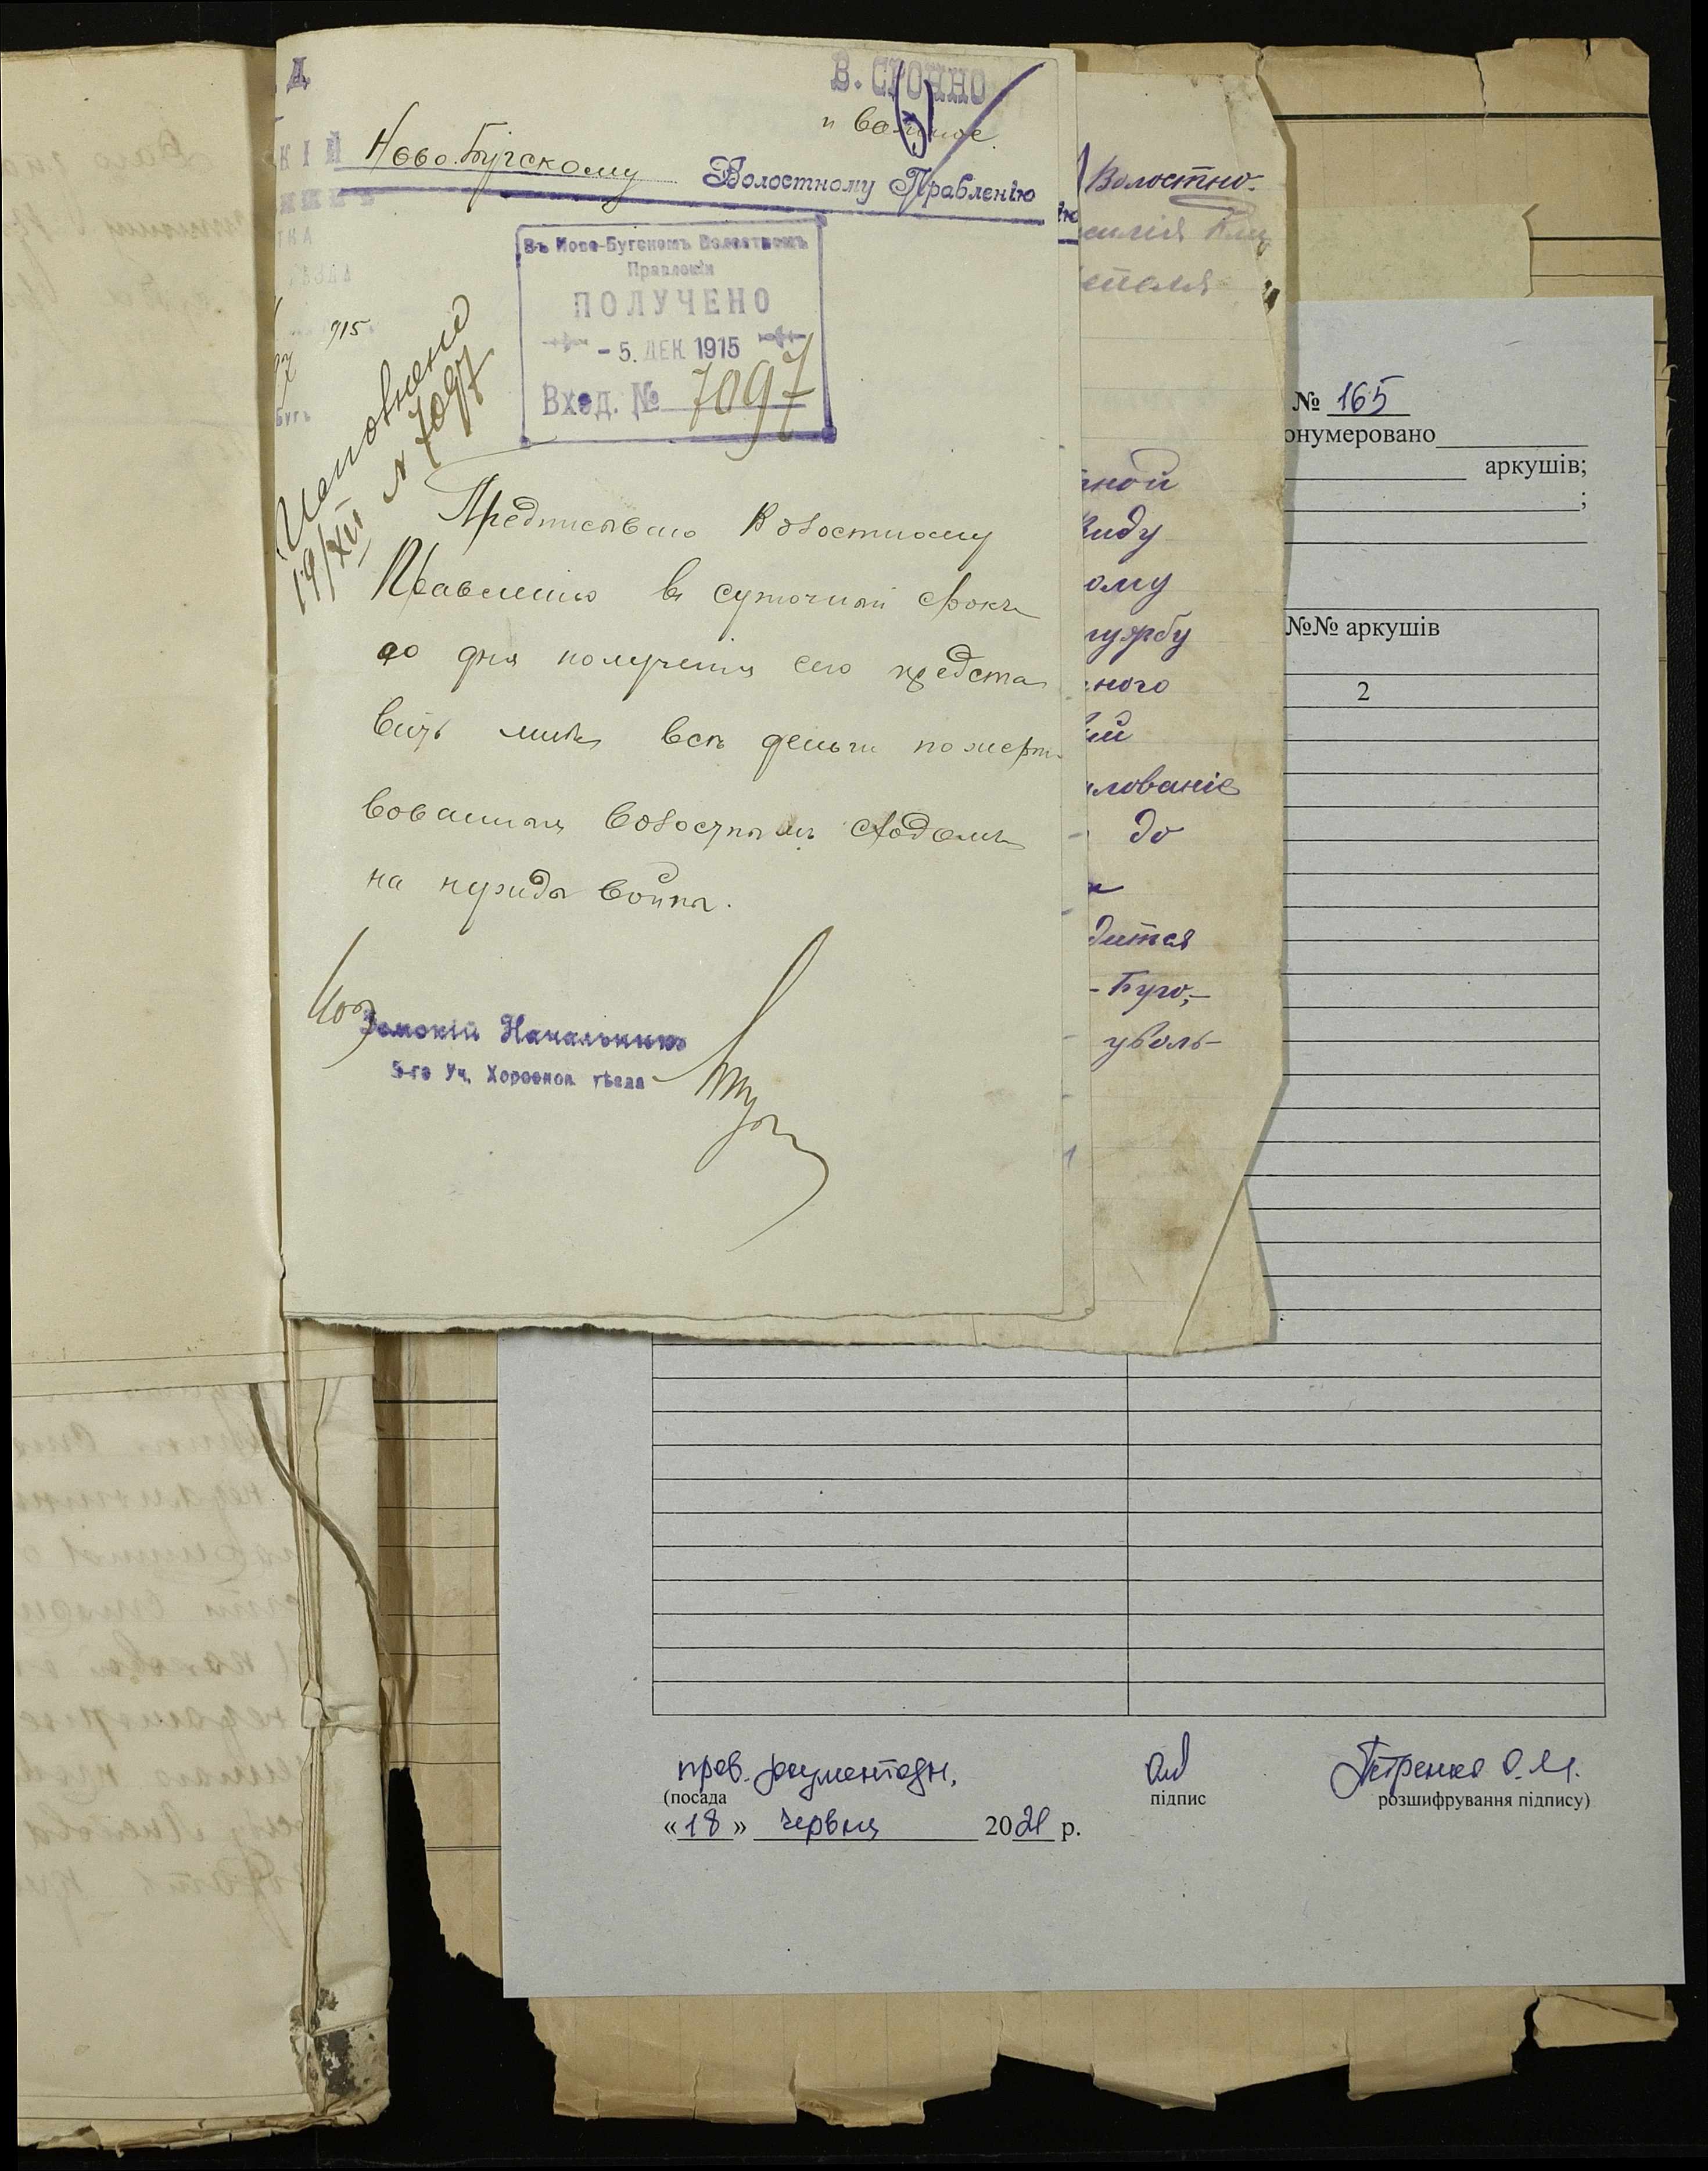 Д
В. СРОЧНО
и важное.
КІЙ
Ново-Бугскому Волостному Правленію
Въ Ново-Бугскомъ Волостномъ
Правленіи
ПОЛУЧЕНО
- 5. ДЕК 1915
Вход. № 7097
915
Бугъ
Исполнено
19/XII N 7097
Предписываю Волостному
Правленію въ суточный срокъ
со дня получения сего предста
вить мнѣ всѣ деньги пожерт-
вованныя волостнымъ сходомъ
на нужды войны.
Земскій Начальникъ
5-го Уч. Херсонск. уѣзда
Волостно-
ной
виду
ому
службу
ного
ий
лованіе
до
дится
- Буго,-
уволь-
№ 165
онумеровано
аркушів;
;
№№ аркушів
2
пров. документозн.
Петренко О.М.
(посада
підпис
розшифрування підпису)
«18» червня 2021 р.